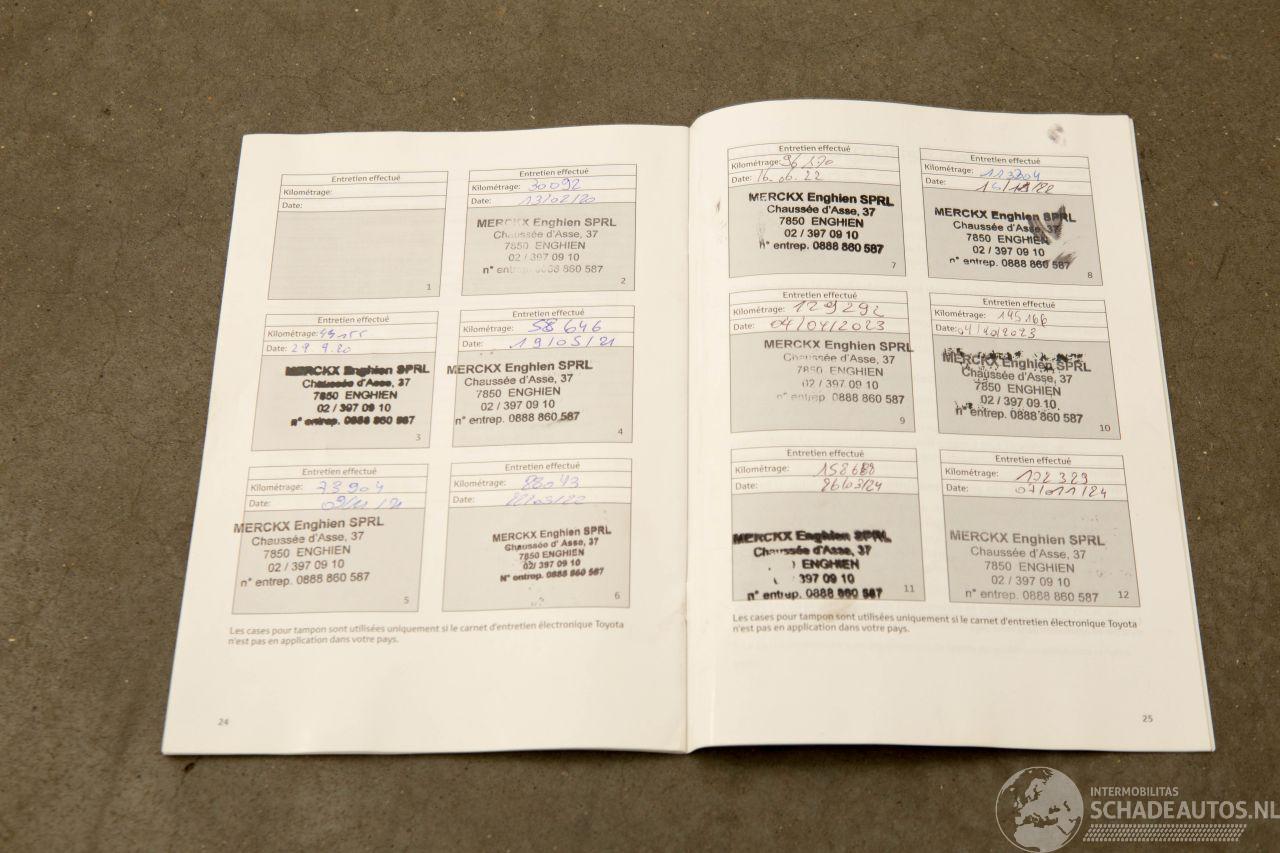 Entretien effectué
Kilométrage:
Date:
1
Entretien effectué
Kilométrage: 30092
Date: 13/02/20
MERCKX Enghien SPRL
Chaussée d'Asse, 37
7850 ENGHIEN
02 / 397 09 10
n° entrep. 0888 860 587
2
Entretien effectué
Kilométrage:
Date: 29.9.20
MERCKX Enghien SPRL
Chaussée d'Asse, 37
7850 ENGHIEN
02 / 397 09 10
n° entrep. 0888 860 587
3
Entretien effectué
Kilométrage: 58 646
Date: 19/05/21
MERCKX Enghien SPRL
Chaussée d'Asse, 37
7850 ENGHIEN
02 / 397 09 10
n° entrep. 0888 860 587
4
Entretien effectué
Kilométrage: 73904
Date:
MERCKX Enghien SPRL
Chaussée d'Asse, 37
7850 ENGHIEN
02 / 397 09 10
n° entrep. 0888 860 587
5
Entretien effectué
Kilométrage: 88043
Date:
MERCKX Enghien SPRL
Chaussée d'Asse, 37
7850 ENGHIEN
02/ 397 09 10
N° entrep. 0888 860 587
6
Les cases pour tampon sont utilisées uniquement si le carnet d'entretien électronique Toyota
n'est pas en application dans votre pays.
24
Entretien effectué
Kilométrage: 96 170
Date: 16.06.22
MERCKX Enghien SPRL
Chaussée d'Asse, 37
7850 ENGHIEN
02 / 397 09 10
n° entrep. 0888 860 587
7
Entretien effectué
Kilométrage: 113204
Date:
MERCKX Enghien SPRL
Chaussée d'Asse, 37
7850 ENGHIEN
02 / 397 09 10
n° entrep. 0888 860 587
8
Entretien effectué
Kilométrage: 129292
Date: 04/04/2023
MERCKX Enghien SPRL
Chaussée d'Asse, 37
7850 ENGHIEN
02 / 397 09 10
n° entrep. 0888 860 587
9
Entretien effectué
Kilométrage: 145166
Date: 04/10/2023
MERCKX Enghien SPRL
Chaussée d'Asse, 37
7850 ENGHIEN
02 / 397 09 10
n° entrep. 0888 860 587
10
Entretien effectué
Kilométrage: 158688
Date: 26/03/24
MERCKX Enghien SPRL
Chaussée d'Asse, 37
ENGHIEN
397 09 10
n° entrep. 0888 860 587
11
Entretien effectué
Kilométrage: 172 329
Date: 07/011/24
MERCKX Enghien SPRL
Chaussée d'Asse, 37
7850 ENGHIEN
02 / 397 09 10
n° entrep. 0888 860 587
12
Les cases pour tampon sont utilisées uniquement si le carnet d'entretien électronique Toyota
n'est pas en application dans votre pays.
25
INTERMOBILITAS
SCHADEAUTOS.NL